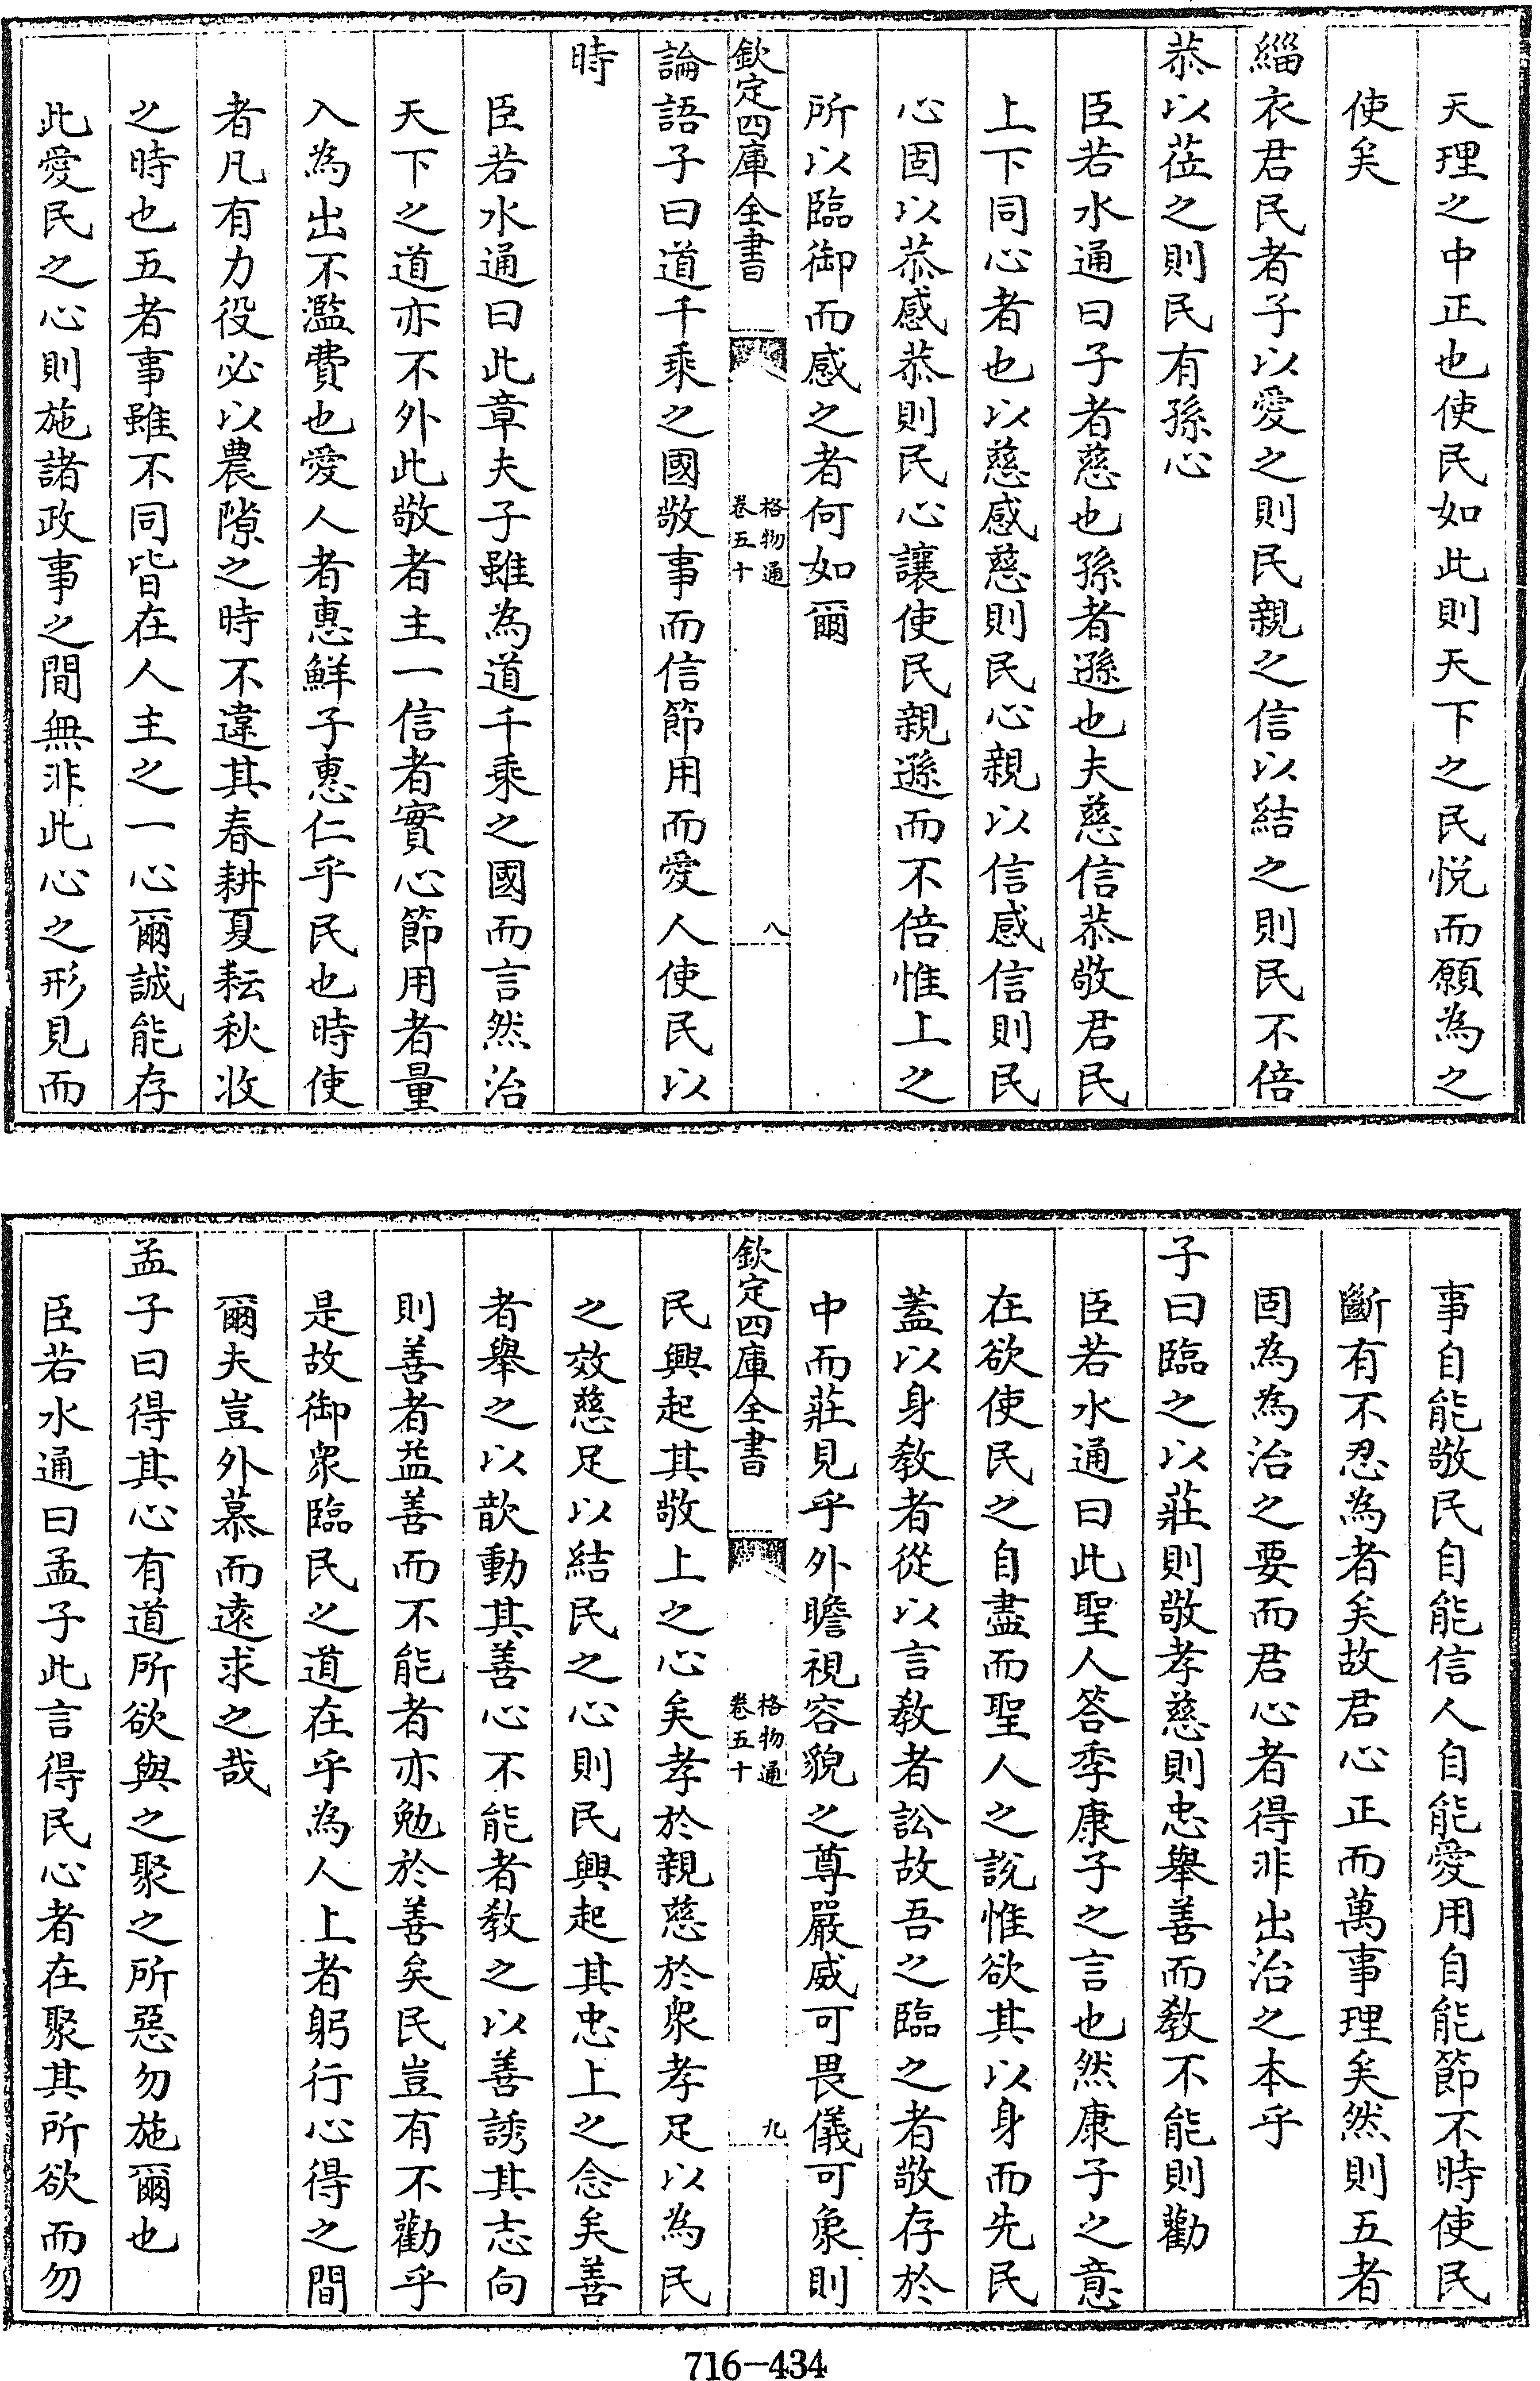 天理之中正也使民如此則天下之民悦而願為之
使矣
緇衣君民者子以愛之則民親之信以結之則民不倍
恭以莅之則民有孫心
臣若水通曰子者慈也孫者遜也夫慈信恭敬君民
上下同心者也以慈感慈則民心親以信感信則民
心固以恭感恭則民心讓使民親遜而不倍惟上之
所以臨御而感之者何如爾
欽定四庫全書
格物通
卷五十
八
論語子曰道千乘之國敬事而信節用而愛人使民以
時
臣若水通曰此章夫子雖為道千乘之國而言然治
天下之道亦不外此敬者主一信者實心節用者量
入為出不濫費也愛人者惠鮮子惠仁乎民也時使
者凡有力役必以農隙之時不違其春耕夏耘秋收
之時也五者事雖不同皆在人主之一心爾誠能存
此愛民之心則施諸政事之間無非此心之形見而
事自能敬民自能信人自能愛用自能節不時使民
斷有不忍為者矣故君心正而萬事理矣然則五者
固為為治之要而君心者得非出治之本乎
子曰臨之以莊則敬孝慈則忠舉善而教不能則勸
臣若水通曰此聖人答季康子之言也然康子之意
在欲使民之自盡而聖人之說惟欲其以身而先民
蓋以身教者從以言教者訟故吾之臨之者敬存於
中而莊見乎外瞻視容貌之尊嚴威可畏儀可象則
欽定四庫全書
格物通
卷五十
九
民興起其敬上之心矣孝於親慈於衆孝足以為民
之效慈足以結民之心則民興起其忠上之念矣善
者舉之以歆動其善心不能者教之以善誘其志向
則善者益善而不能者亦勉於善矣民豈有不勸乎
是故御衆臨民之道在乎為人上者躬行心得之間
爾夫豈外慕而遠求之哉
孟子曰得其心有道所欲與之聚之所惡勿施爾也
臣若水通曰孟子此言得民心者在聚其所欲而勿
716-434